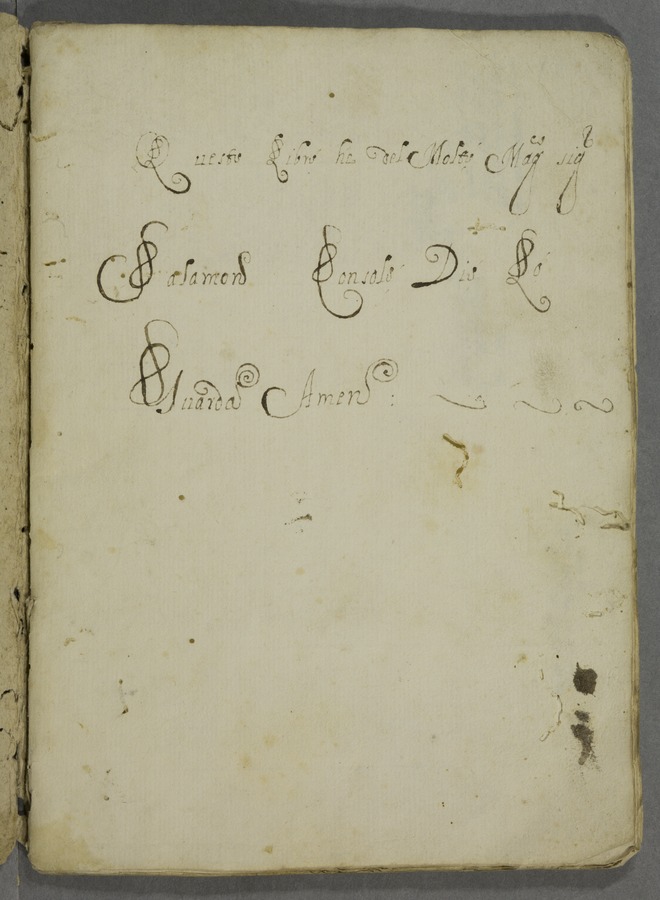 Questo Libro he del Molto Mag.co sig.r
Salamon Consolo Dio Lo
Guarda Amen :